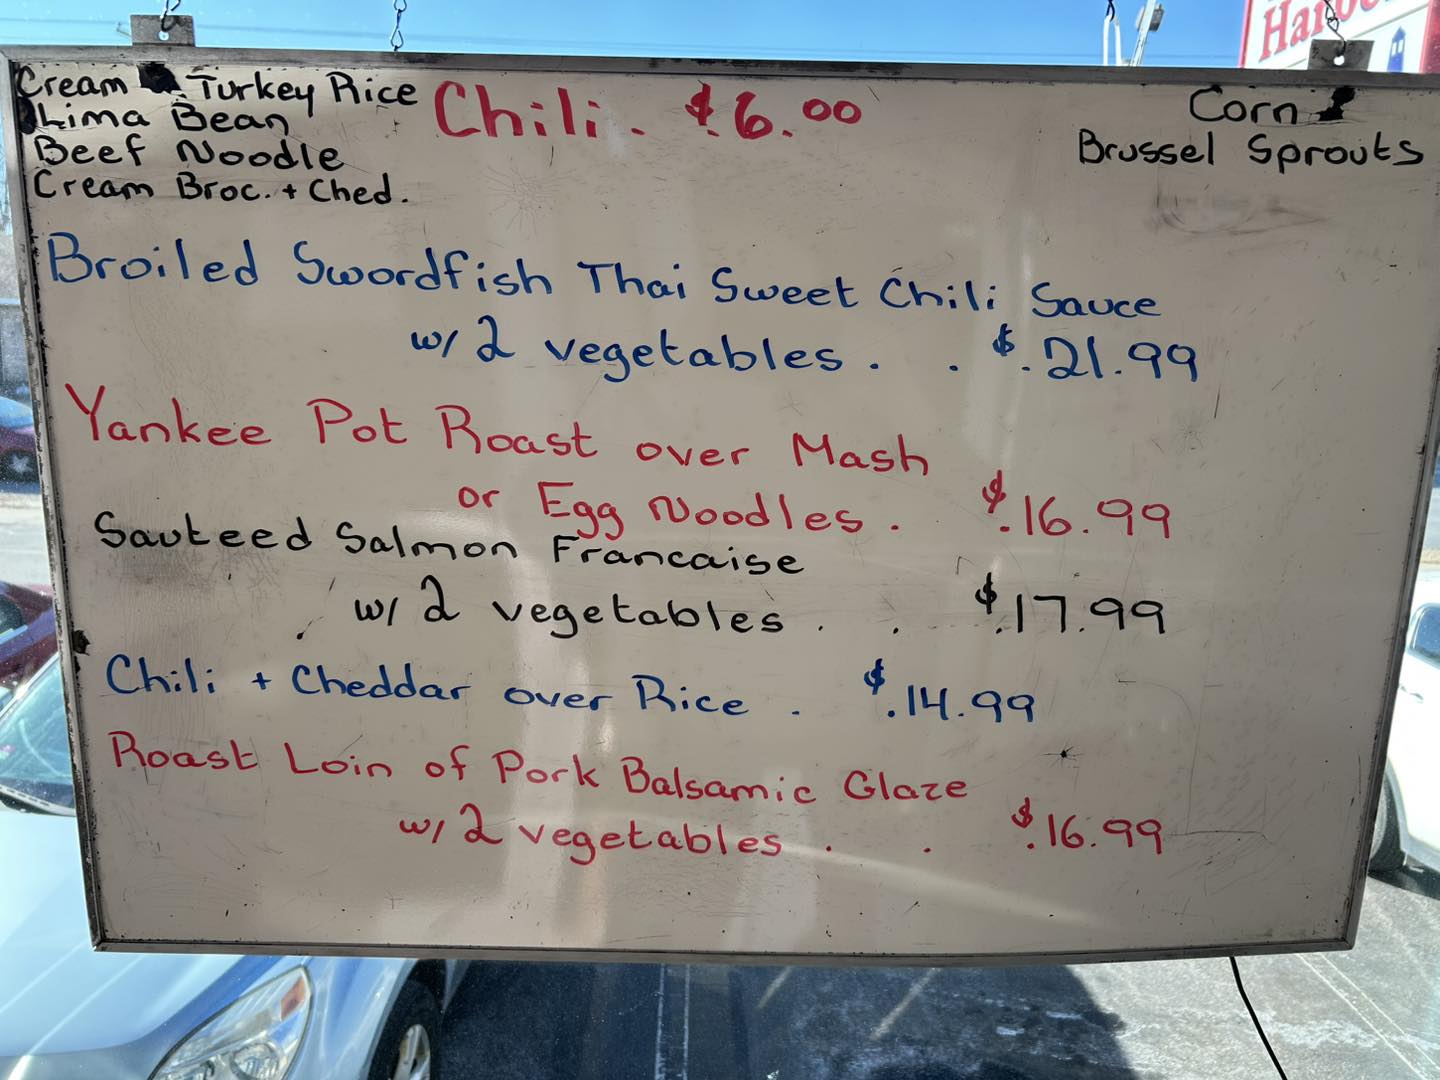 Cream Turkey Rice
Lima Bean
Beef Noodle
Cream Broc. + Ched.
Chili. $6.00
Corn
Brussel Sprouts
Broiled Swordfish Thai Sweet Chili Sauce
w/ 2 vegetables . . $.21.99
Yankee Pot Roast over Mash
or Egg Noodles . $.16.99
Sauteed Salmon Francaise
w/ 2 vegetables . . $.17.99
Chili + Cheddar over Rice . $.14.99
Roast Loin of Pork Balsamic Glaze
w/ 2 vegetables . . $.16.99